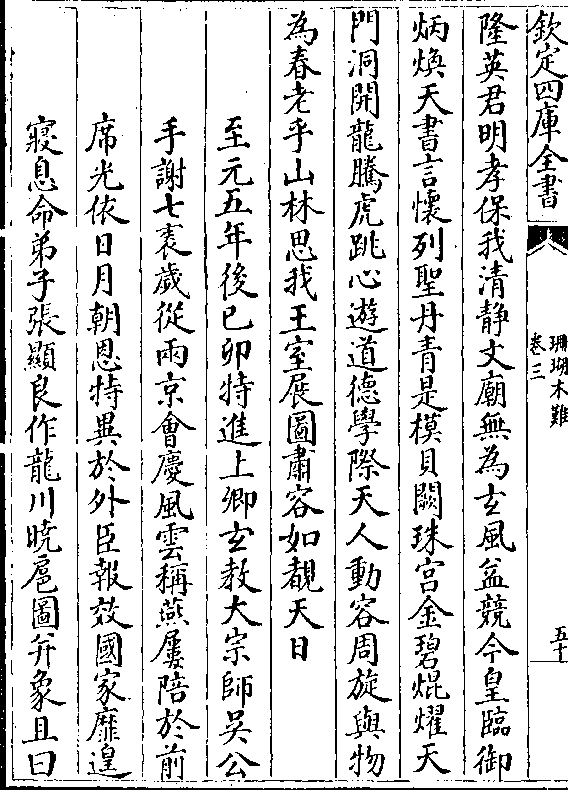 欽定四庫全書
珊瑚木難
卷三
五十
隆英君明孝保我清静文廟無為玄風益競今皇臨御
炳煥天書言懷列聖丹青是模貝闕珠宫金碧焜燿天
門洞開龍騰虎跳心遊道德學際天人動容周旋與物
為春老乎山林思我王室展圖肅容如覩天日
至元五年後己卯特進上卿玄教大宗師吳公
手謝七袠歲從兩京會慶風雲稱燕屢陪於前
席光依日月朝恩特異於外臣報效國家靡遑
寢息命弟子張顯良作龍川曉扈圖并象且曰